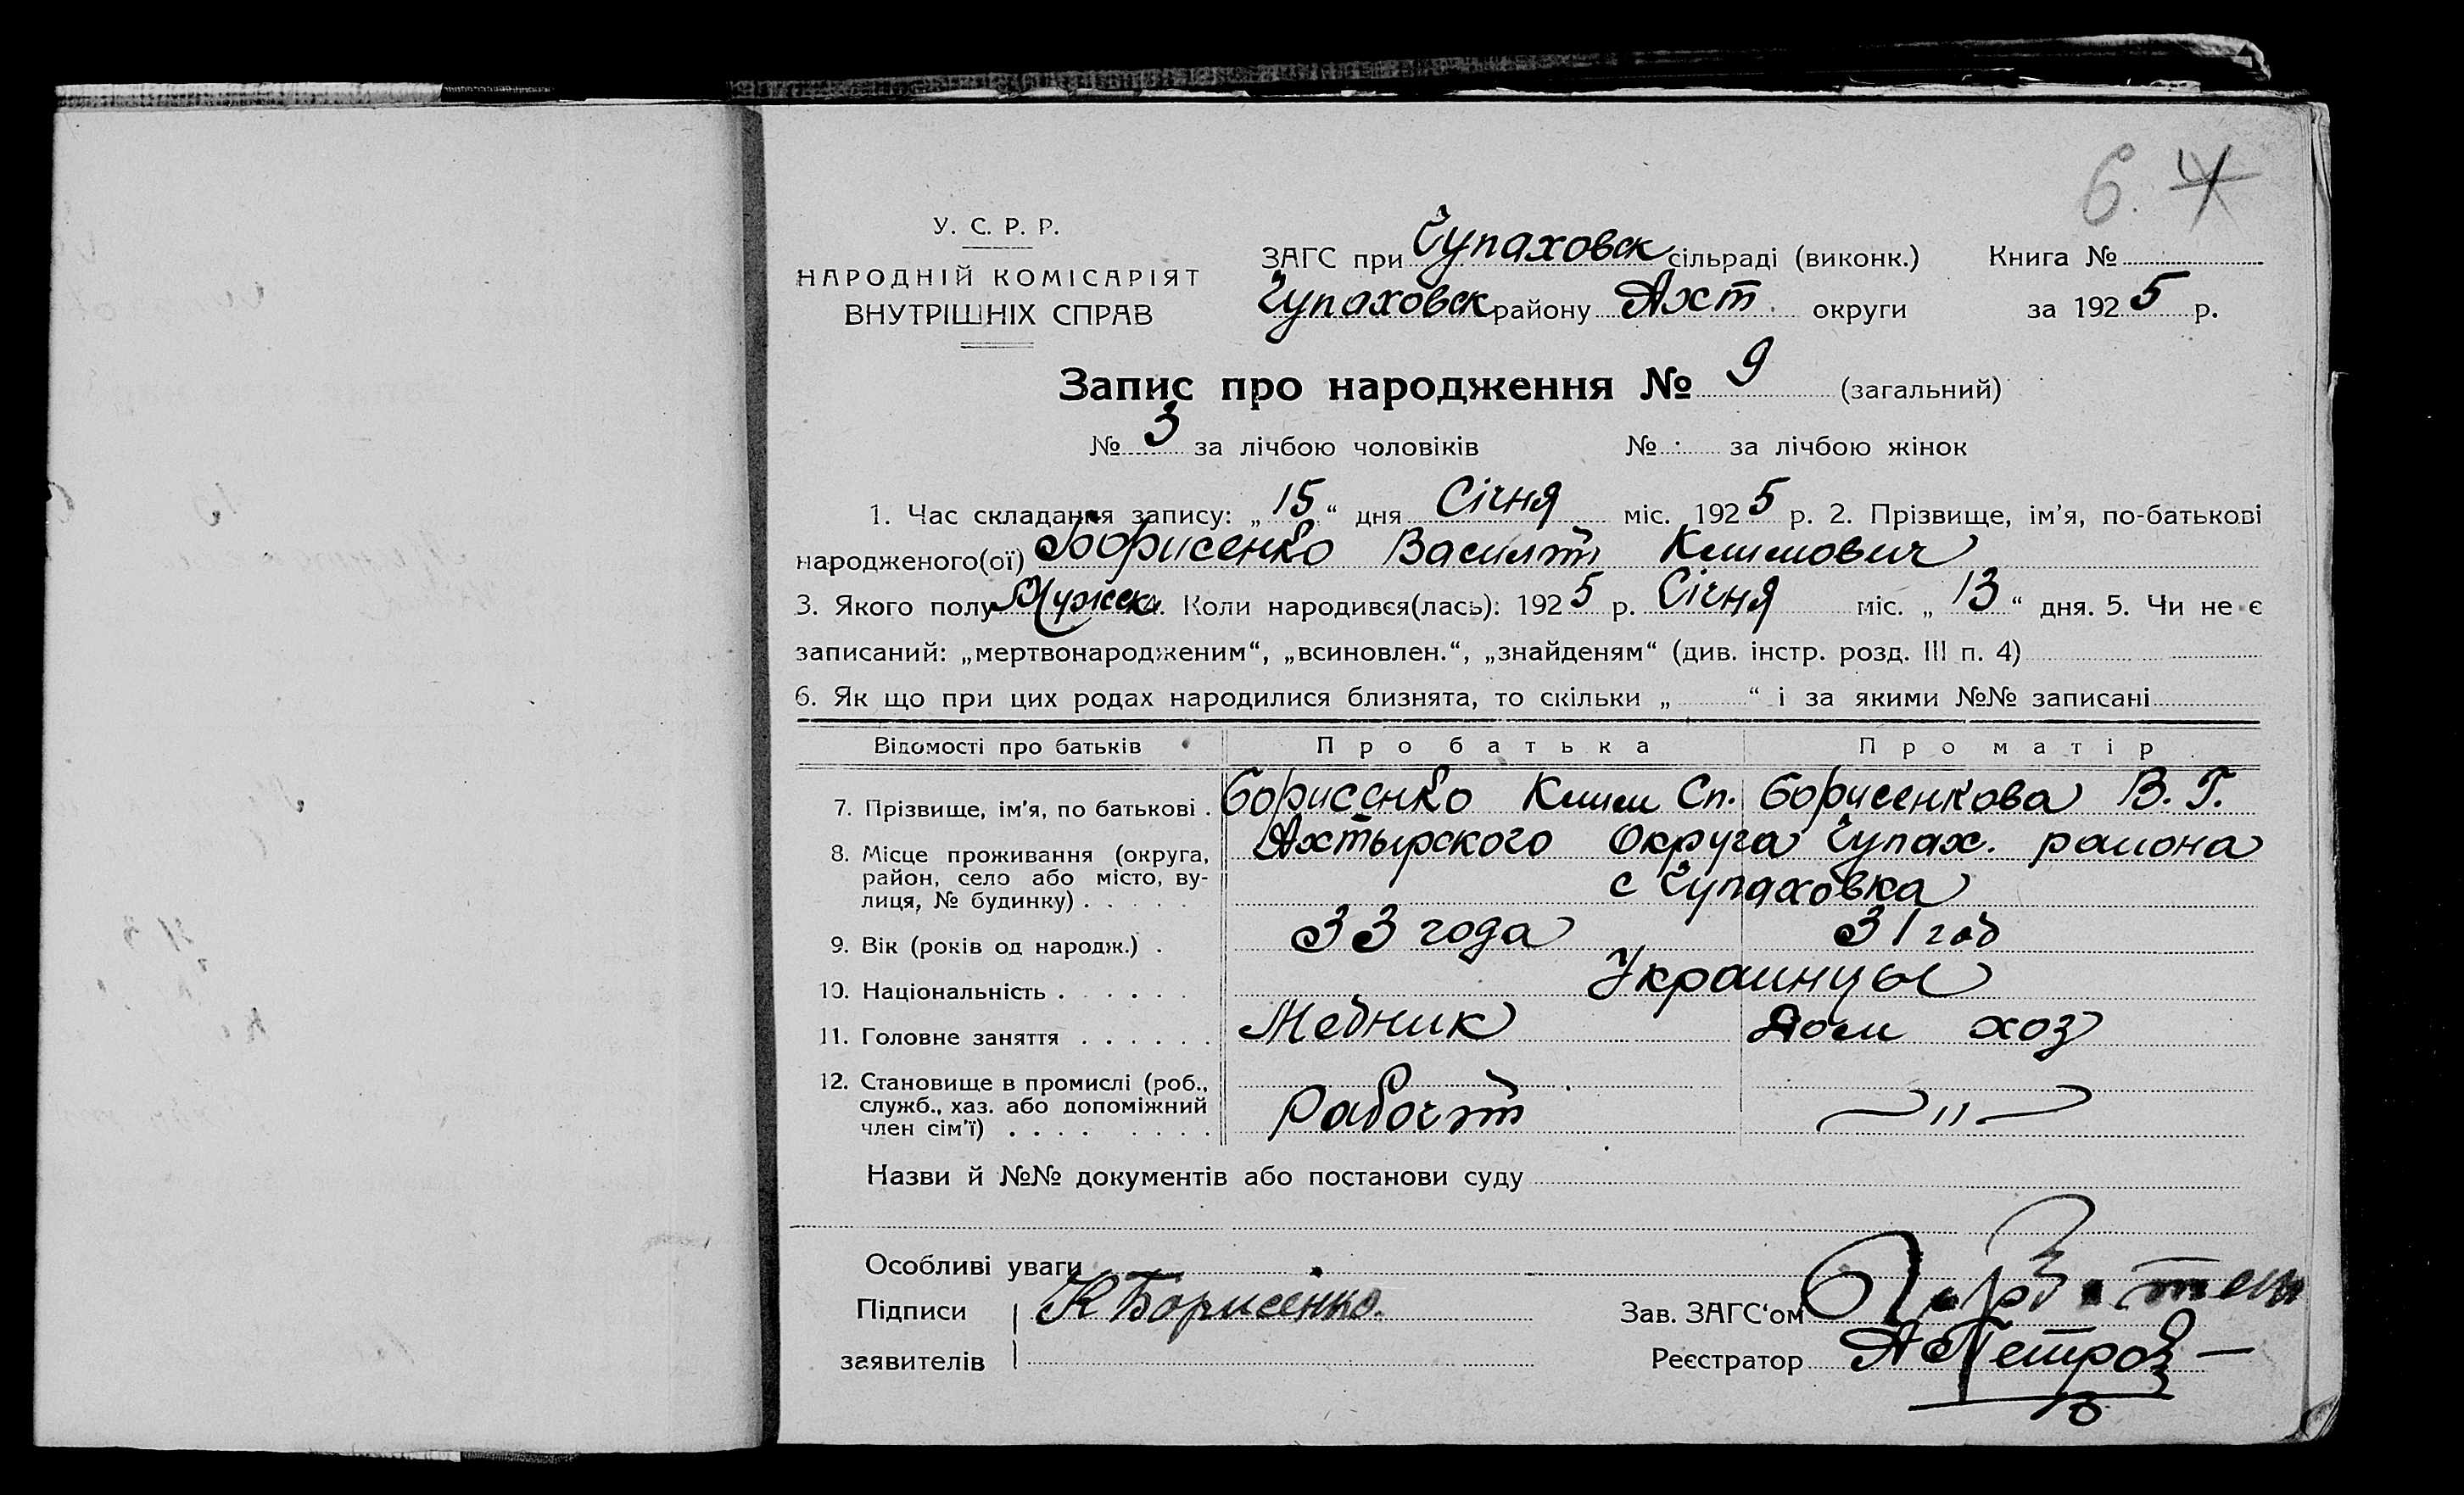 6. 4
У. С. Р. Р.
НАРОДНІЙ КОМІСАРІЯТ
ВНУТРІШНІХ СПРАВ
ЗАГС при Чупаховск сільраді (виконк.) Книга №
Чупаховск району Ахт. округи за 1925 р.
Запис про народження № 9 (загальний)
№ 3 за лічбою чоловіків № за лічбою жінок
1. Час складання запису: „15“ дня Січня міс. 1925 р. 2. Прізвище, ім'я, по-батькові
народженого(ої) Борисенко Василій Климович
3. Якого полу Мужск. Коли народився(лась): 1925 р. Січня міс. „13“ дня. 5. Чи не є
записаний: „мертвонародженим“, „всиновлен.“, „знайденям“ (див. інстр. розд. III п. 4)
6. Як що при цих родах народилися близнята, то скільки „ “ і за якими №№ записані
Відомості про батьків Про батька Про матір
7. Прізвище, ім'я, по батькові . Борисенко Клим Сп. Борисенкова В. Г.
8. Місце проживання (округа, район, село або місто, вулиця, № будинку) . . . . . Ахтырского Округа Чупах. района
с Чупаховка
9. Вік (років од народж.) . 33 года 31 год
10. Національність . . . . . . Украинцы
11. Головне заняття . . . . . . Медник Дом хоз
12. Становище в промислі (роб., служб., хаз. або допоміжний член сім'ї) . . . . . . . . Рабочий —"—
Назви й №№ документів або постанови суду
Особливі уваги
Підписи К Борисенко.
заявителів
Зав. ЗАГС‘ом
Реєстратор А Петров